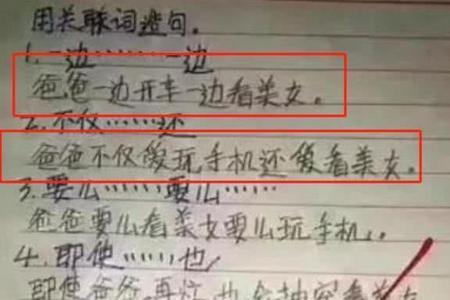 用关联词造句。
1.一边……一边
爸爸一边开车一边看美女。
2.不仅……还
爸爸不仅爱玩手机还爱看美女。
3.要么……要么……
爸爸要么看美女要么玩手机。
4.即使……也
即使爸爸再忙也会抽空看美女